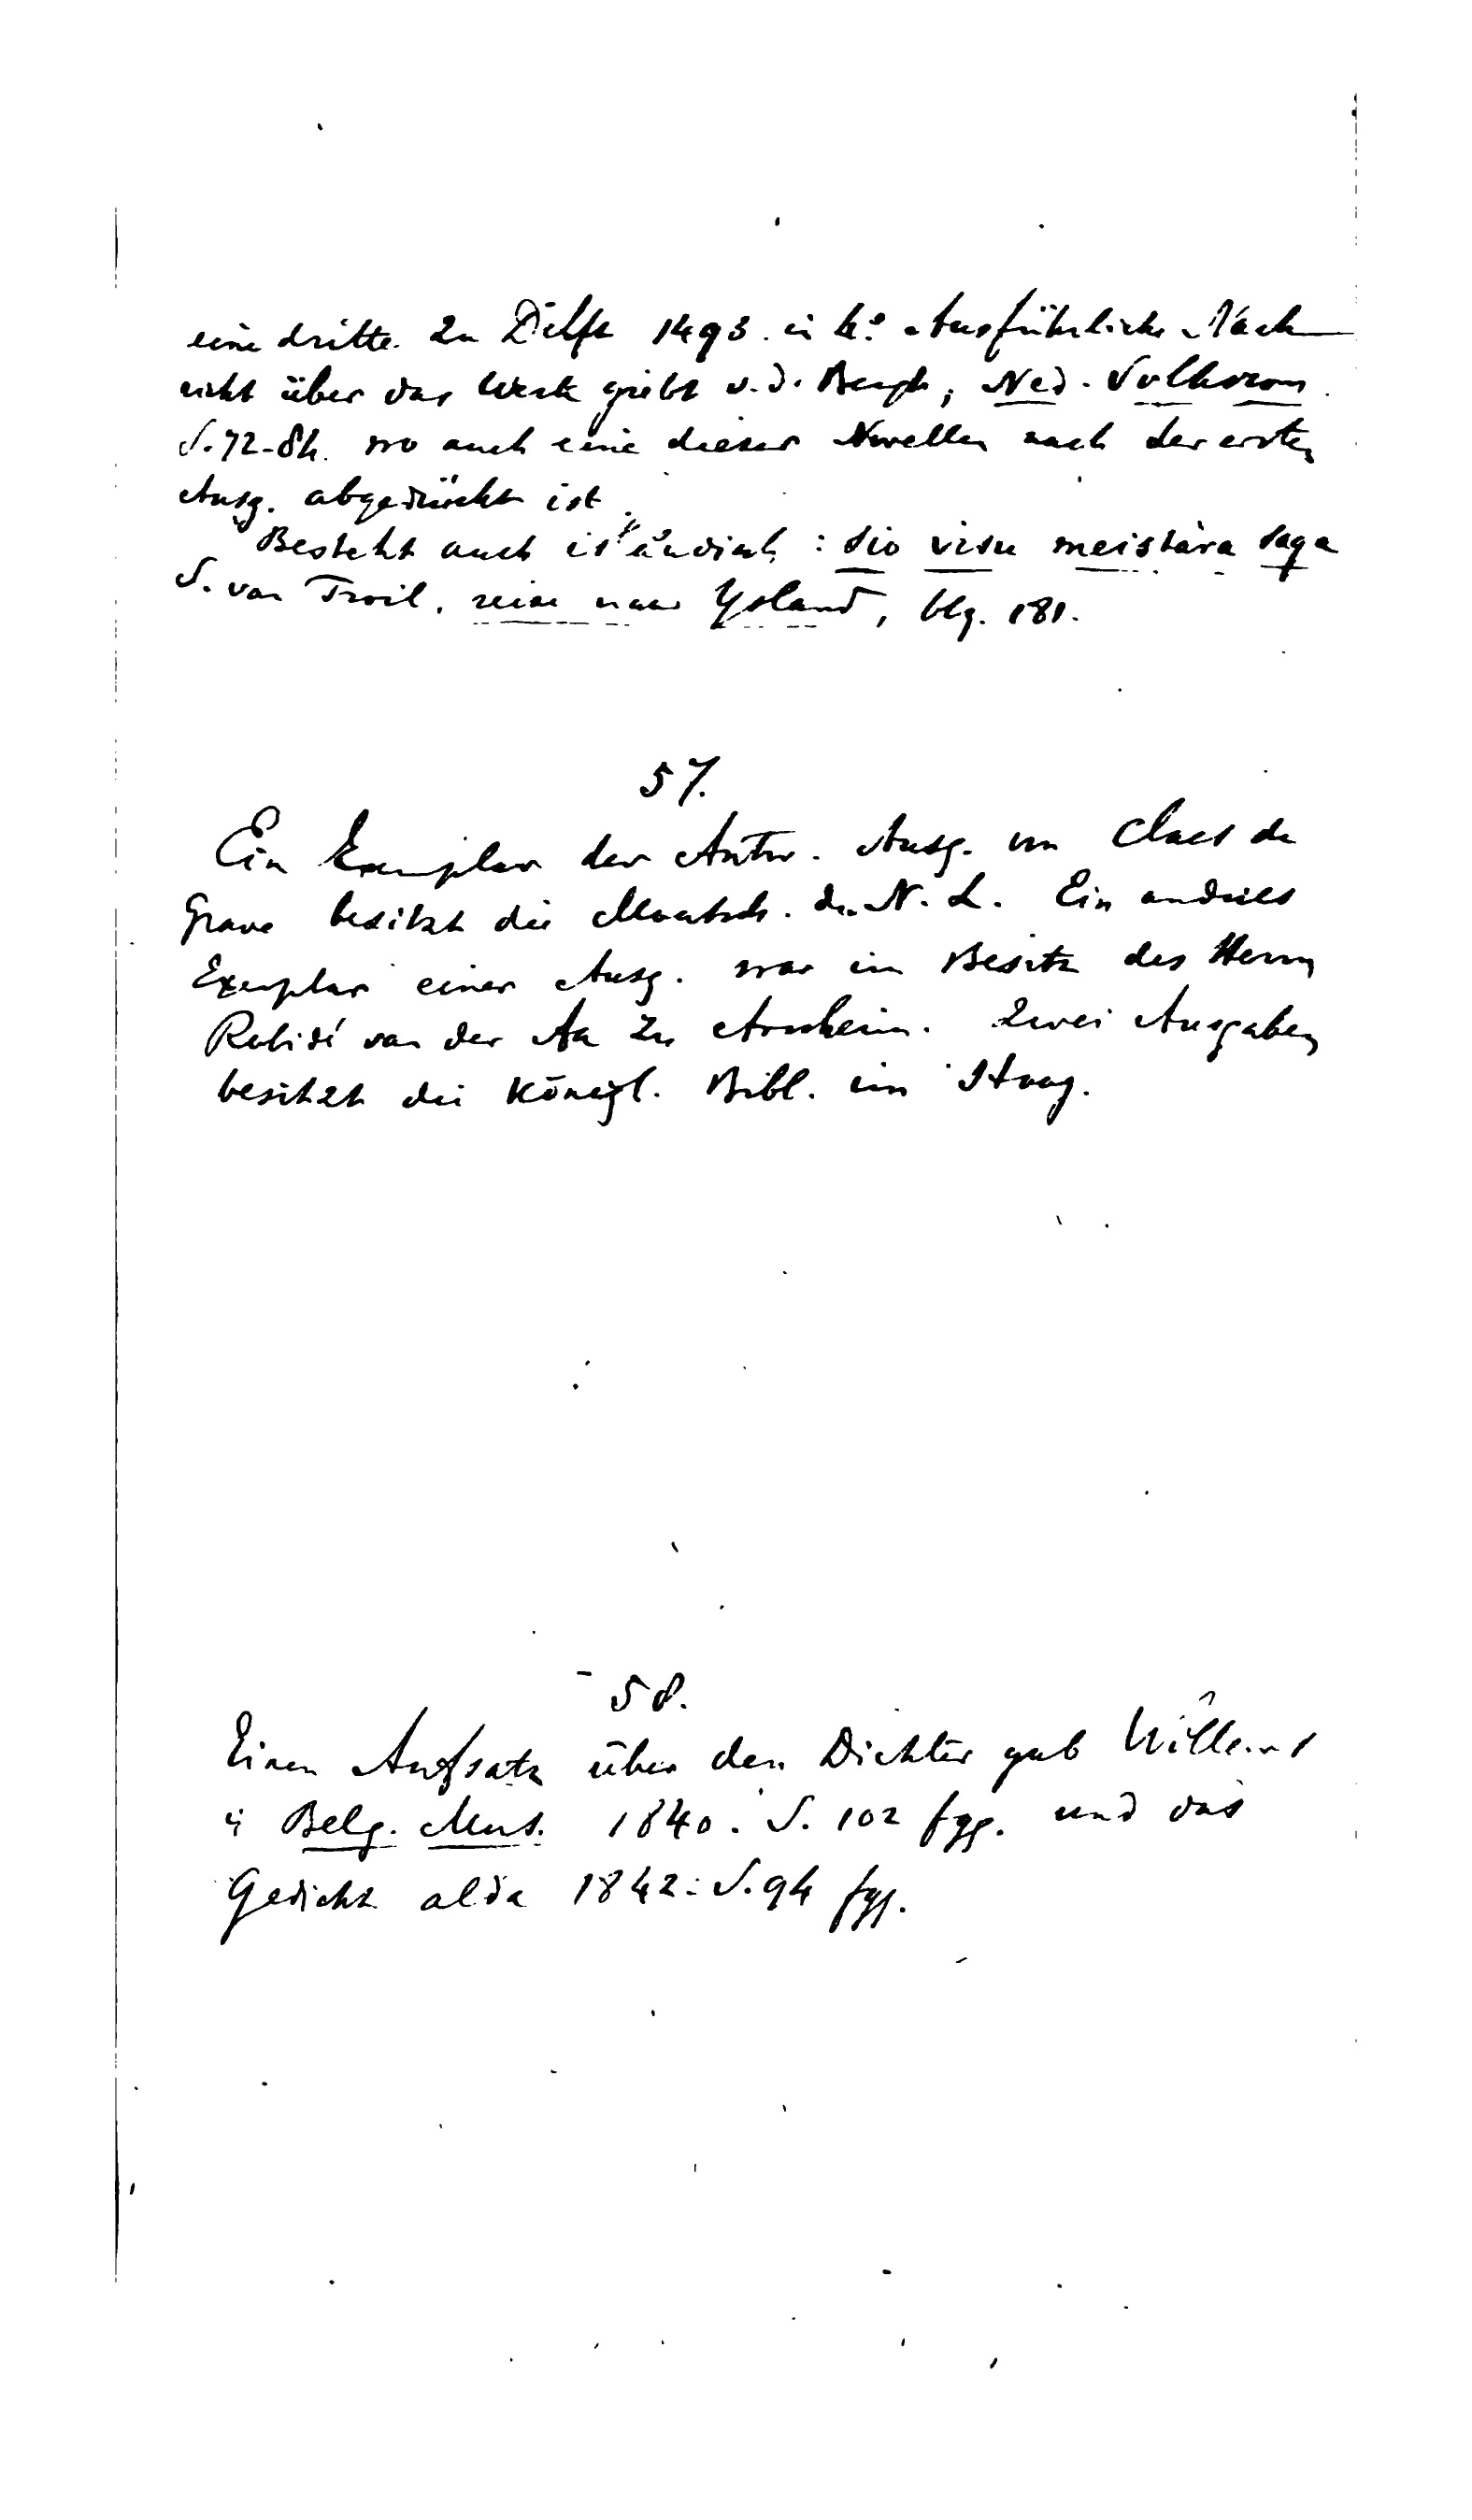 eine dritte zu Delft 1493. in 4º. Ausführliche Nach
richt über das Werk giebt v. d. Bergh, Ned. Volksrom.
S. 72-84. wo auch eine dieser Novellen nach der ersten
Ausg. abgedrückt ist.
Besteht auch isländisch: Sio visu meistara saga
S. van Troil, reise naar Ysland, blz. 181.
57.
Ein Exemplar der Antw. Ausg. von Claes de
Grave besitzt die Maatsch. de N. L. Ein anderes
Exemplar einer Ausg. war im Besitz des Herrn
Robidé van der Aa zu Arnheim. Zwei Ausgaben
besitzt die Königl. Bibl. im Haag.
58.
Einen Aufsatz über den Dichter gab Willems
in Belg. Mus. 1840. S. 102 fgg. und das
Gedicht alda 1842. S. 94 fgg.